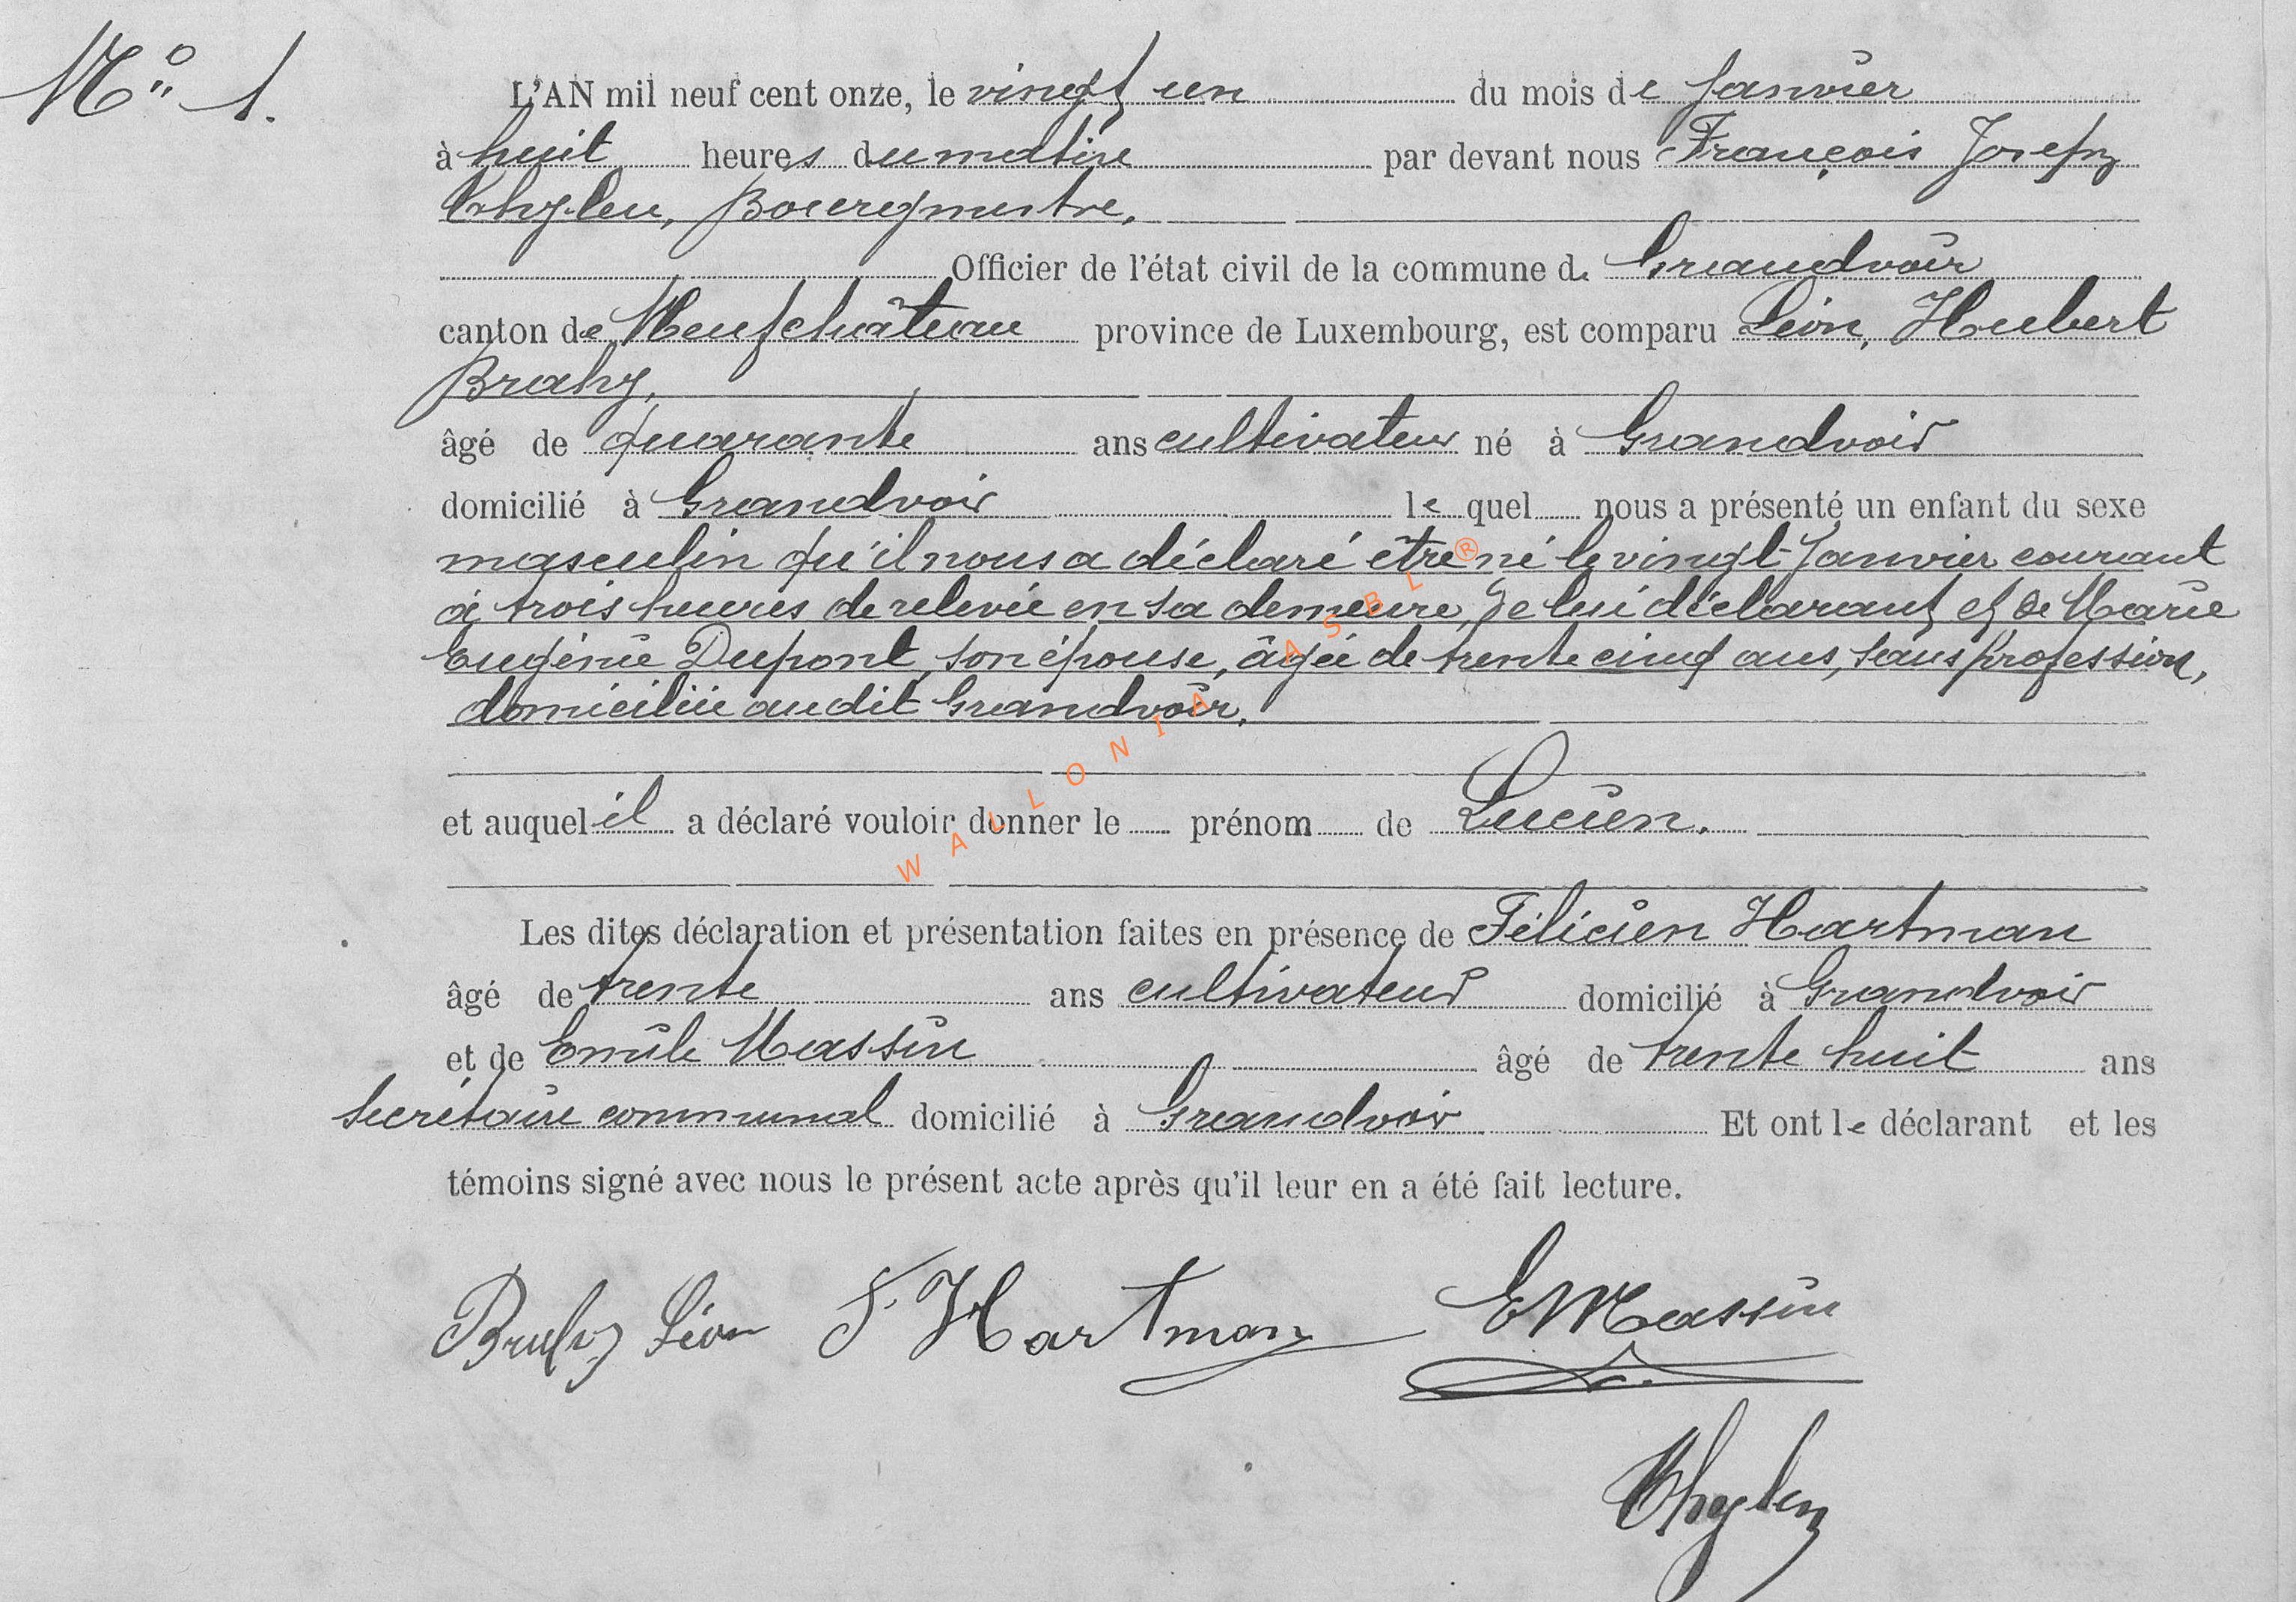 N° 1.
L'AN mil neuf cent onze, le vingt un du mois de Janvier
à huit heures du matin par devant nous François Joseph
Thylen, Bourgmestre,
Officier de l'état civil de la commune de Grandvoir
canton de Neufchâteau province de Luxembourg, est comparu Léon, Hubert
Brahy,
âgé de quarante ans cultivateur né à Grandvoir
domicilié à Grandvoir lequel nous a présenté un enfant du sexe
masculin qu'il nous a déclaré être né le vingt Janvier courant
à trois heures de relevée en sa demeure, de lui déclarant et de Marie
Eugénie Dupont, son épouse, âgée de trente cinq ans, sans profession,
domiciliée audit Grandvoir.
et auquel il a déclaré vouloir donner le prénom de Lucien.
Les dites déclaration et présentation faites en présence de Félicien Hartman
âgé de trente ans cultivateur domicilié à Grandvoir
et de Emile Massin âgé de trente huit ans
secrétaire communal domicilié à Grandvoir Et ont le déclarant et les
témoins signé avec nous le présent acte après qu'il leur en a été fait lecture.
Brahy Léon F. Hartman E Massin
Thylen
WALLONIA ASBL ®